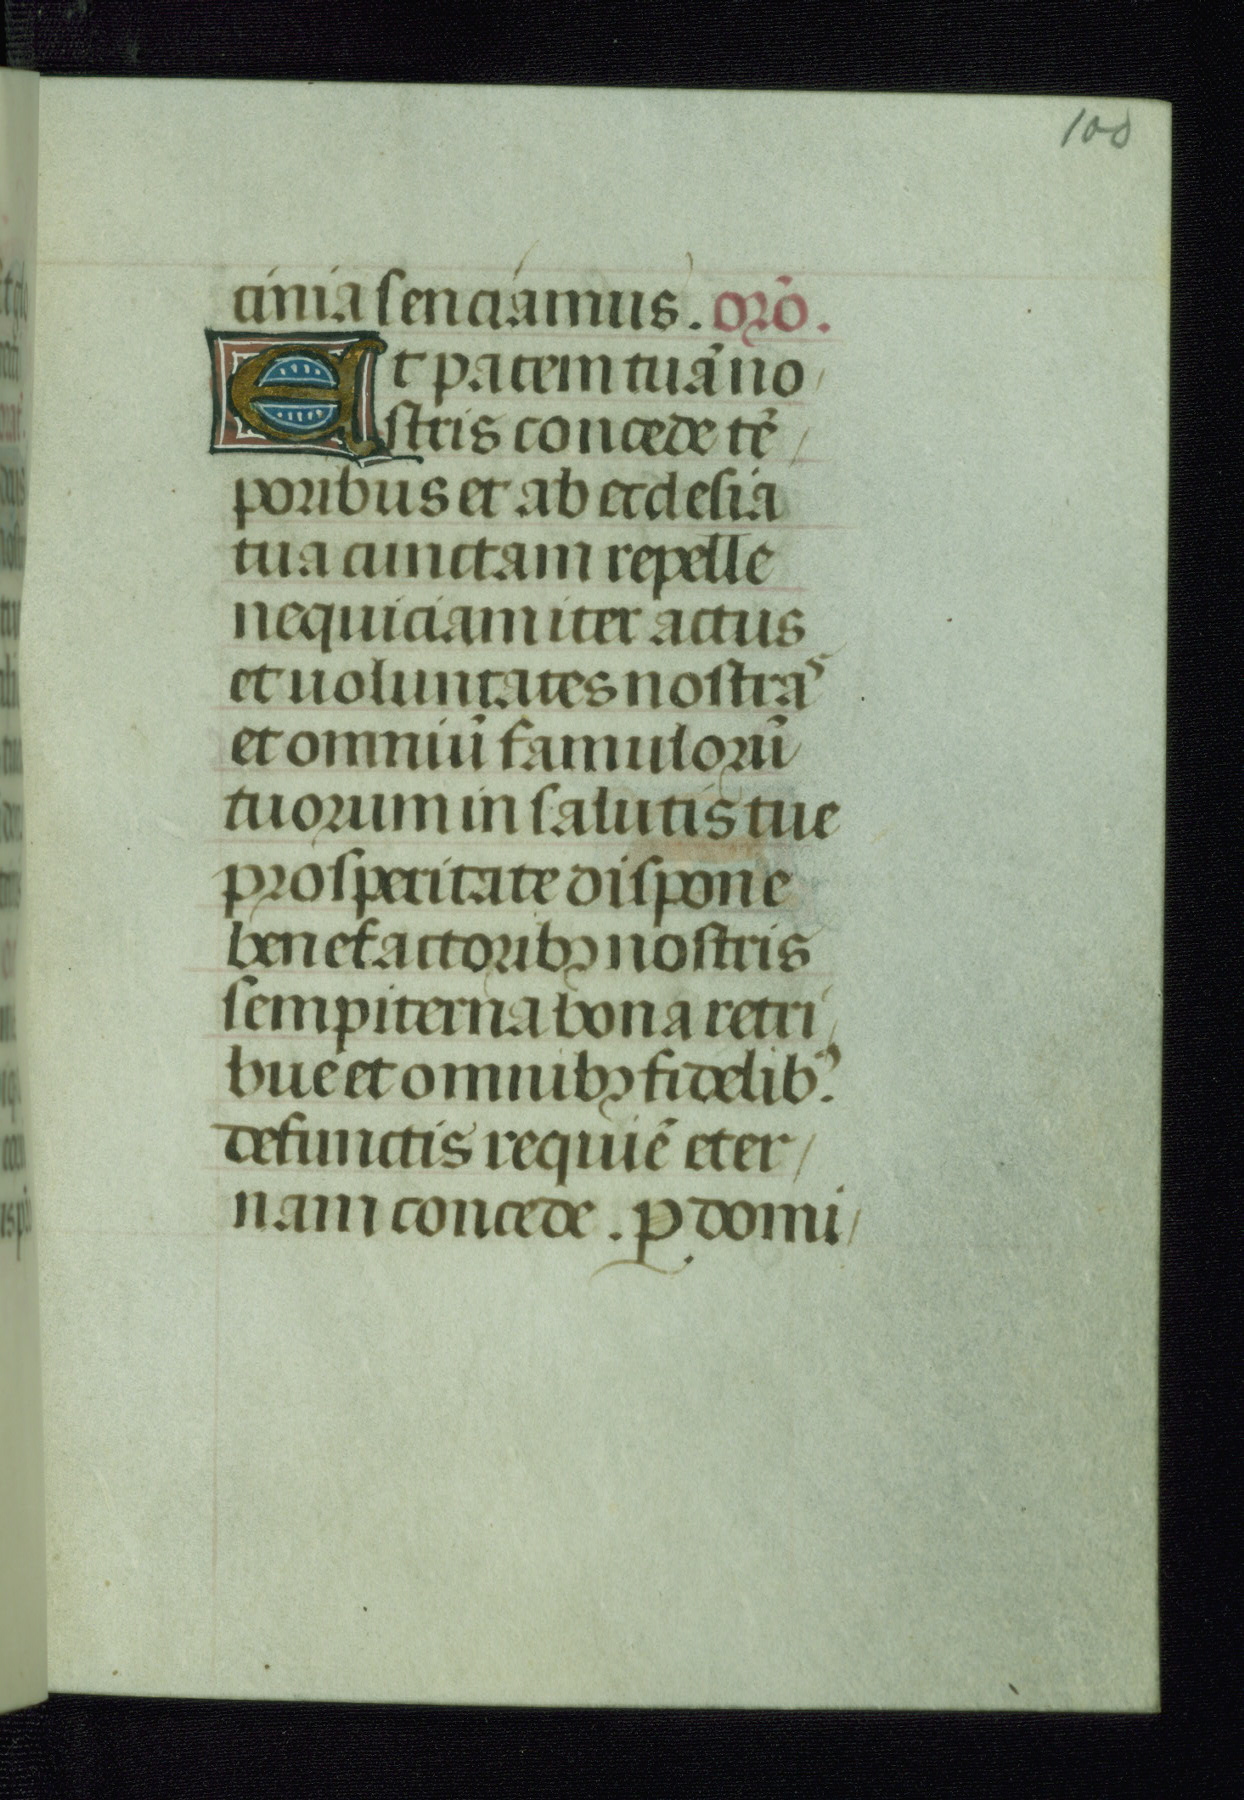 100
cinia senciamus. orō.
Et pacem tuā no
stris concede tē
poribus et ab ecclesia
tua cunctam repelle
nequiciam iter actus
et uoluntates nostras
et omniū famulorū
tuorum in salutis tue
prosperitate dispone
benefactoribꝫ nostris
sempiterna bona retri
bue et omnibꝫ fidelibꝰ.
defunctis requiē eter
nam concede. ꝑ domi